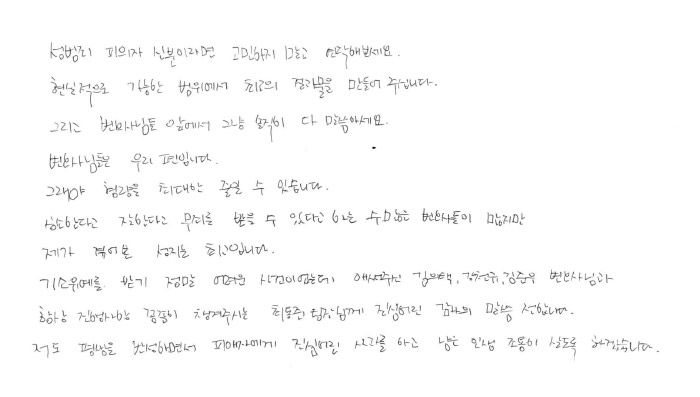 성범죄 피의자 신분이라면 고민하지 말고 연락해보세요.
현실적으로 가능한 범위에서 최고의 결과물을 만들어 주십니다.
그리고 변호사님들 앞에서 그냥 솔직히 다 말씀하세요.
변호사님들은 우리 편입니다.
그래야 형량을 최대한 줄일 수 있습니다.
상소한다고 무죄를 받을 수 있다고 하는 수많은 변호사들이 많지만
제가 겪어본 성지는 최고입니다.
기소유예를 받기 정말 어려운 사건이었는데 애써주신 변호사님과
항상 진행사항 꼼꼼히 챙겨주시는 팀장님께 진심어린 감사의 말씀 전합니다.
저도 평생을 반성하면서 피해자에게 진심어린 사과를 하고 남은 인생 조용히 살도록 하겠습니다.